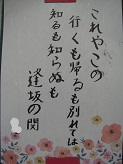 これやこの
行くも帰るも別れては
知るも知らぬも
逢坂の関